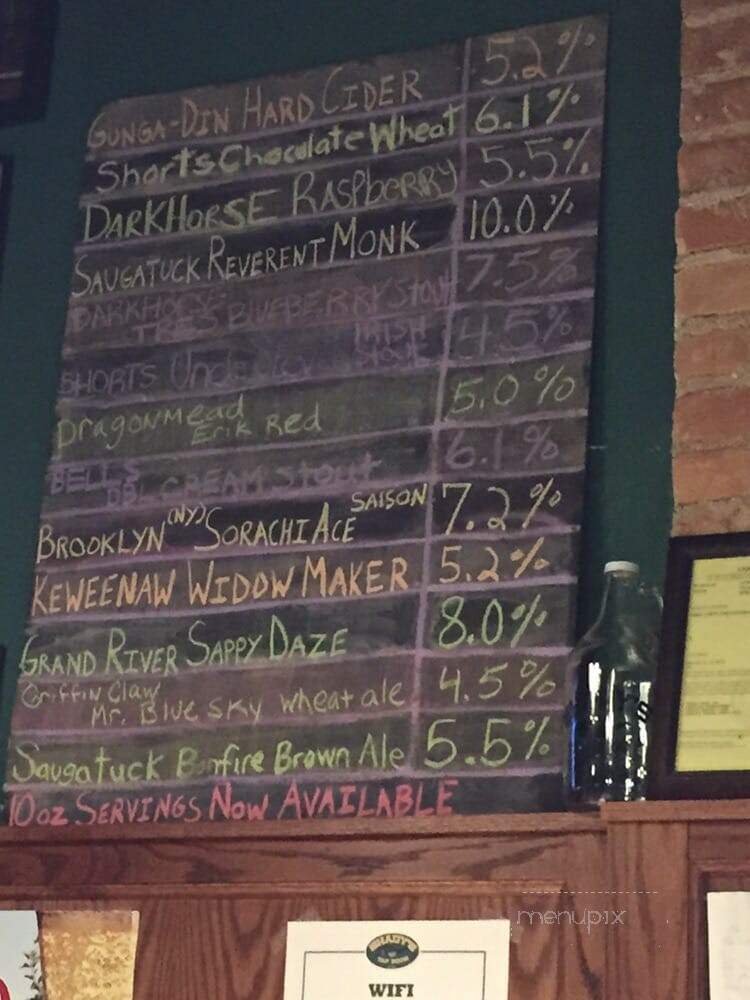 GUNGA-DIN HARD CIDER 5.2%
Shorts Chocolate Wheat 6.1%
DARKHORSE RASPBERRY 5.5%
SAUGATUCK REVERENT MONK 10.0%
DARKHORSE 7.5%
TRES BLUEBERRY STOUT
IRISH
SHORTS STOUT 4.5%
Dragonmead 5.0%
Erik Red
BELL'S 6.1%
DBL CREAM STOUT
BROOKLYN (NY) SORACHI ACE SAISON 7.2%
KEWEENAW WIDOW MAKER 5.2%
GRAND RIVER SAPPY DAZE 8.0%
Griffin Claw 4.5%
Mr. Blue sky wheat ale
Saugatuck Bonfire Brown Ale 5.5%
10oz SERVINGS NOW AVAILABLE
menupix
SHADY'S
TAP ROOM
WIFI